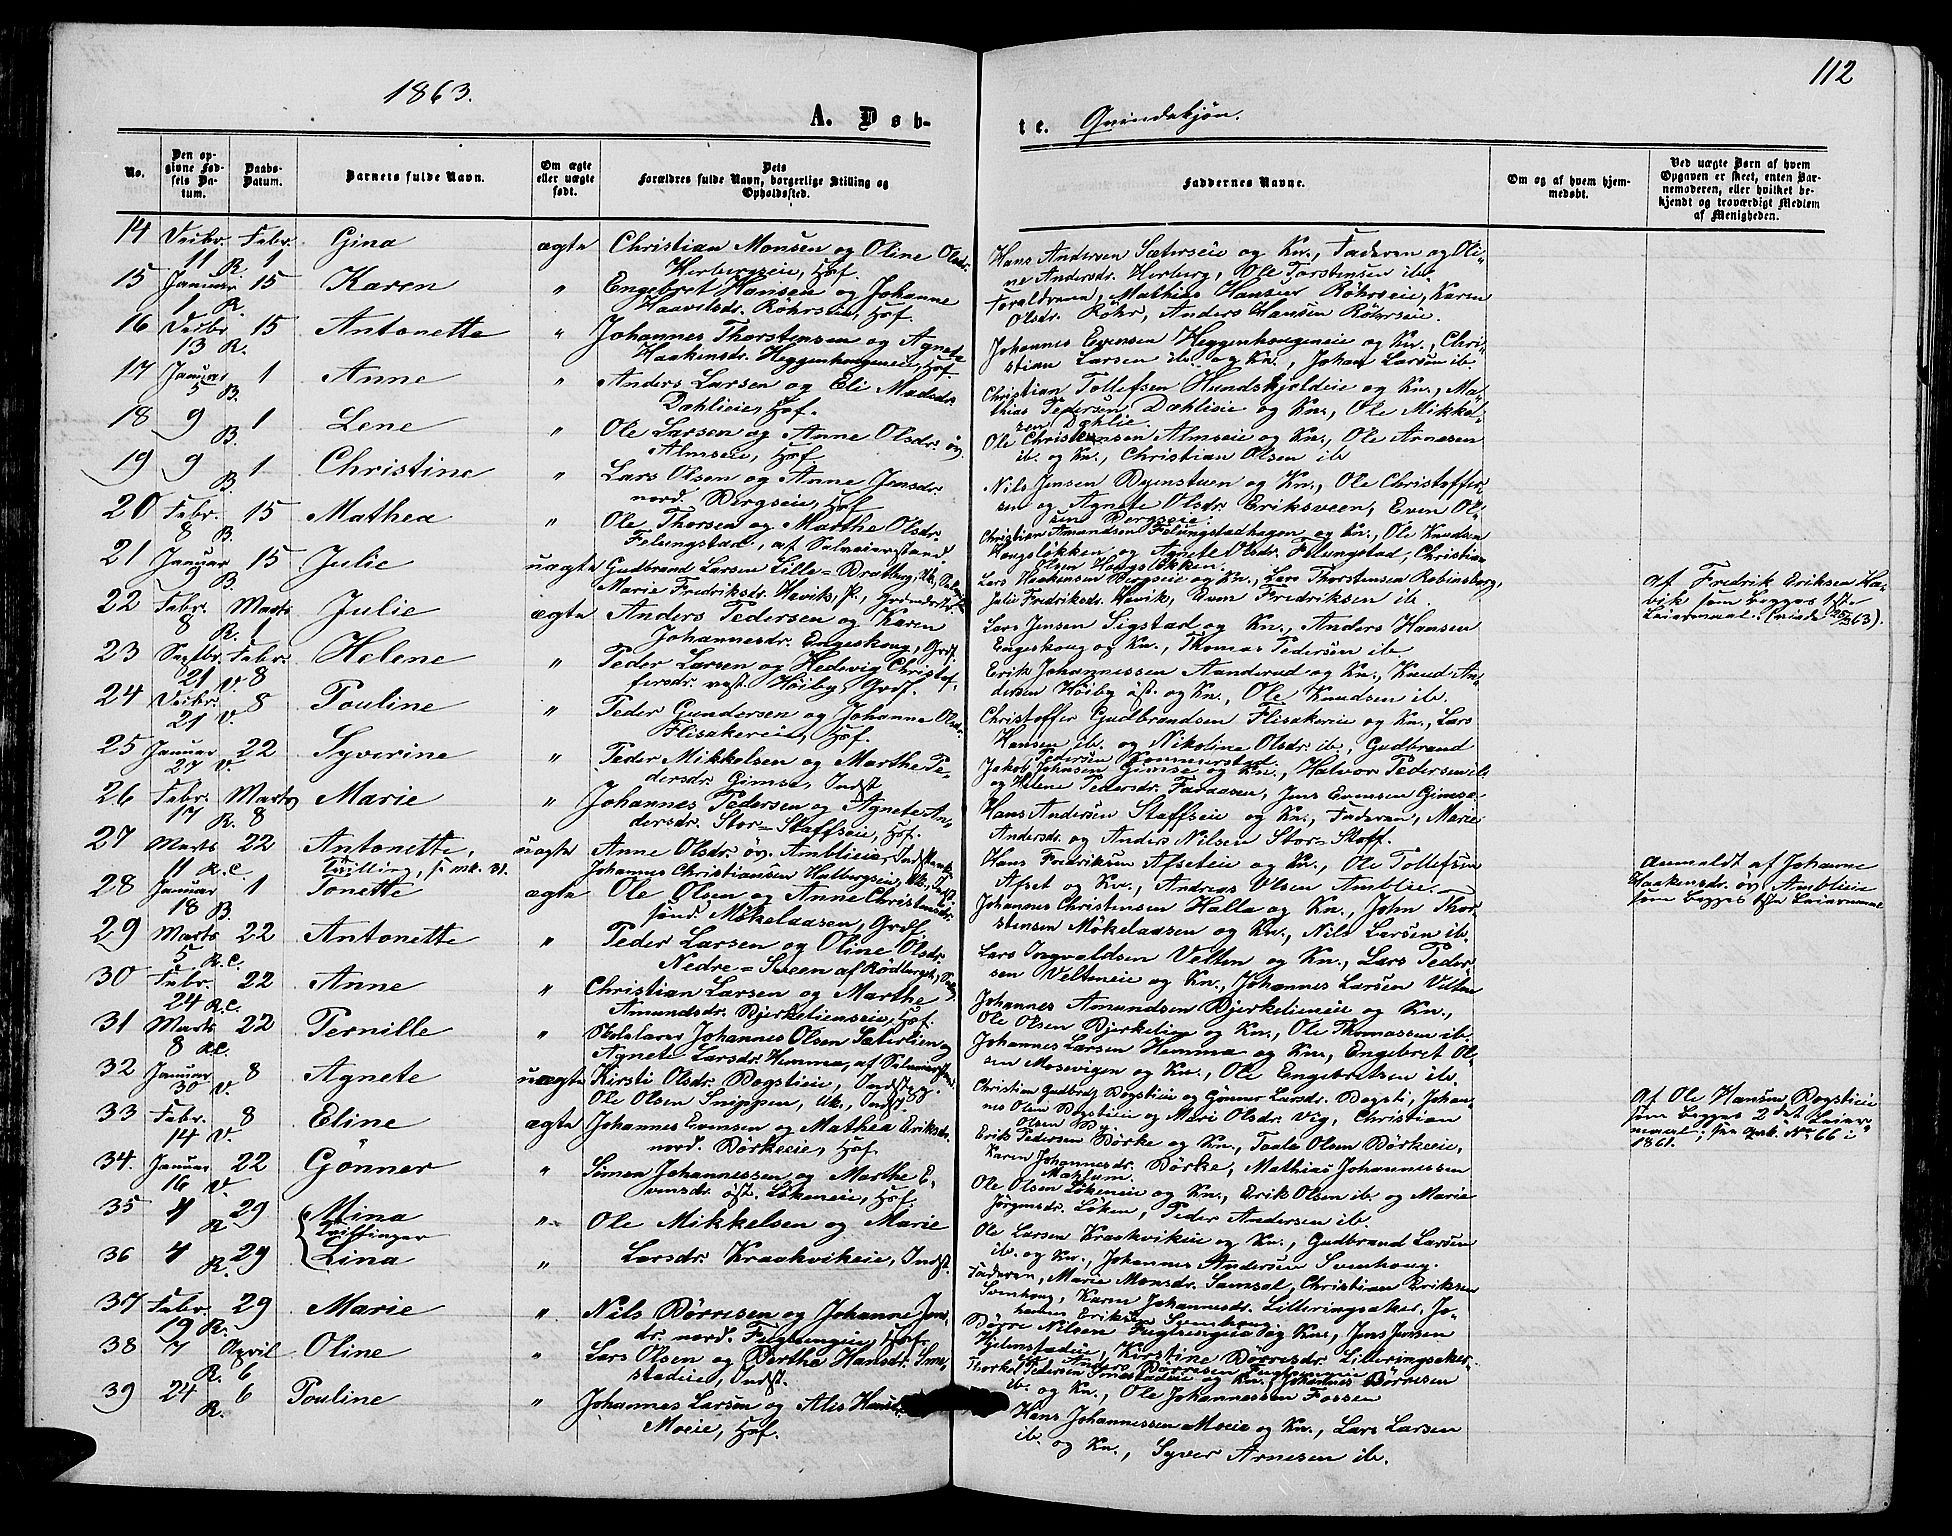 1863.
112
A. Døb-
te. Qvindekjøn.
No.
Den op-
givne Fød-
sels Da-
tum.
Daabs-
Datum.
Barnets fulde Navn.
Om ægte
eller uægte
født.
Dets
Forældres fulde Navn, borgerlige Stilling og
Opholdssted.
Faddernes Navne.
Om og af hvem hjem-
medøbt.
Ved uægte Børn af hvem
Opgaven er skeet, enten Bar-
nemoderen, eller hvilket be-
kjendt og troværdigt Medlem
af Menigheden.
14 Decbr. Febr. Gina ægte Christian Monsen og Oline Olsdr.
11 R. 1 Herbergseie, Hof.
Hans Andersen Sæterseie og Kn., Faderen og Oli-
ne Andersdr. Herberg, Ole Torstensen ib.
15 Januar 15 Karen " Engebret Hansen og Johanne
1 R. Haavelsdr. Röhrseie, Hof.
Forældrene, Mathias Hansen Röhrseie, Karen
Olsdr. Röhr, Anders Hansen Röhrseie.
16 Decbr. 15 Antonette " Johannes Thorstensen og Agnete
13 R. Haakensdr. Heggenhougeneie, Hof.
Johannes Evensen Heggenhougeneie og Kn., Chri-
stian Larsen ib. og Kn., Johan Larsen ib.
17 Januar 1 Anne " Anders Larsen og Eli Madsdr.
5 B. Dæhlieie, Hof.
Christian Tollefsen Hundskjoldeie og Kn., Ma-
thias Pedersen Dæhlieie og Kn., Ole Mikkel-
sen Dæhlie.
18 9 1 Lene " Ole Larsen og Anne Olsdr. öv.
B. Almseie, Hof
Ole Christensen Almseie og Kn., Ole Arnesen
ib. og Kn., Christian Olsen ib
19 9 1 Christine " Lars Olsen og Anne Jensdr.
B. nord. Bergseie, Hof
Nils Jensen Byenstuen og Kn., Ole Christoffer-
sen og Agnete Olsdr. Eriksveen, Even Ol-
sen Bergseie.
20 Febr. 15 Mathea " Ole Thorsen og Marthe Olsdr.
8 B. Felungstad, af Selveierstand
Christian Amundsen Felungstadhagen og Kn., Ole Knudsen
Hougslökken og Agnete Olsdr. Felungstad, Christian
Olsen Hougslökken.
21 Januar 15 Julie uægte Gudbrand Larsen Lille-Bratberg, Uk.,
9 B. Marie Fredriksdr. Havik, P.,
Lars Haakensen Bergseie og Kn., Lars Thorstensen Robinsberg,
Julie Fredriksdr. Havik, Even Fredriksen ib
af Fredrik Eriksen Ha-
vik som begges 1ste
Leiermaal.
22 Febr. Marts Julie ægte Anders Pedersen og Karen
8 R. 1 Johannesdr. Engeskoug, Grdf.
Lars Jensen Sigstad og Kn., Anders Hansen
Engeskoug og Kn., Thomas Pedersen ib.
23 Septbr. Febr. Helene " Peder Larsen og Hedevig Christof-
21 V. 8 fersdr. vest. Höiby, Grdf.
Erik Johannessen Aanderud og Kn., Knud An-
dersen Höiby öst. og Kn., Ole Knudsen ib.
24 Decbr. 8 Pouline " Peder Gundersen og Johanne Olsdr.
21 V. Flisakereie, Hof.
Christoffer Gudbrandsen Flisakereie og Kn., Lars
Hansen ib. og Nikoline Olsdr. ib., Gudbrand
Pedersen Sommerstad.
25 Januar 22 Syverine " Peder Mikkelsen og Marthe Pe-
27 V. dersdr. Gimse, Indst
Jakob Johnsen Gimse og Kn., Halvor Pedersen ib.
og Helene Pedersdr. Faraasen, Jens Evensen Gimse
26 Febr. Marts Marie " Johannes Pedersen og Agnete An-
17 R. 8 dersdr. Stor-Staffseie, Hof.
Hans Andersen Staffseie og Kn., Faderen, Marie
Andersdr. og Anders Nilsen Stor-Staff.
27 Marts 22 Antonette, uægte Anne Olsdr. öv. Amblieie, Indst
11 R.C. Tvilling, s. mk. 31. Johannes Christiansen Hulbergseie, Uk.,
Hans Fredriksen Afseteie og Kn., Ole Tollefsen
Afset og Kn., Andreas Olsen Amblie.
Anmeldt af Johanne
Haakensdr. öv. Amblieie
som begges 1ste Leiermaal
28 Januar 1 Tonette ægte Ole Olsen og Anne Christensdr.
18 B. sönd. Mökelaasen, Grdf.
Johannes Christensen Halla og Kn., John Thor-
stensen Mökelaasen og Kn., Nils Larsen ib.
29 Marts 22 Antonette " Peder Larsen og Oline Olsdr.
5 R.C. Nedre-Sveen af Rödberget,
Lars Ingvaldsen Velten og Kn., Lars Peder-
sen Velteneie og Kn., Johannes Larsen Velten
30 Febr. 22 Anne " Christian Larsen og Marthe
24 R.C. Amundsdr. Bjerkelieneie, Hof.
Johannes Amundsen Bjerkelieneie og Kn.,
Ole Olsen Bjerkelien og Kn., Ole Thomassen ib.
31 Marts 22 Pernille " Skolelærer Johannes Olsen Sæterlien og
8 R.C. Agnete Larsdr. Hemma, af Selveierstand.
Johannes Larsen Hemma og Kn., Engebret Ol-
sen Mosevigen og Kn., Ole Engebretsen ib.
32 Januar 8 Agnete uægte Kirsti Olsdr. Bogstieie, Indst. og
30 V. Ole Olsen Snippen, Uk., Indst.
Christian Gudbrds. Bogstieie og Gönner Larsdr. Bogsti, Johan-
nes Olsen Bogstieie og Mari Olsdr. Vig, Christian
Olsen By.
af Ole Hansen Bogstieie
som begges 2det Leier-
maal, see No. 66 i
1861.
33 Febr. 8 Eline ægte Johannes Evensen og Mathea Eriksdr.
14 V. nord. Börkeeie, Hof
Erik Pedersen Börke og Kn., Taale Olsen Börkeeie,
Karen Johannesdr. Börke, Mathias Johannessen
Mæhlum.
34. Januar 22 Gönner " Simen Johannessen og Marthe E-
16 V. vensdr. öst. Lökeneie, Hof
Ole Olsen Lökeneie og Kn., Erik Olsen ib. og Marie
Jörgensdr. Löken, Peder Andersen ib.
35 4 29 Mina " Ole Mikkelsen og Marie
R Tvillinger
Ole Larsen Kraakvikeie og Kn., Gudbrand Larsen
ib. og Kn., Johannes Andersen Svenhoug.
36 4 29 Lina " Larsdr. Kraakvikeie, Indst.
R.
Faderen, Marie Monsdr. Samsal, Christian Eriksen
Svenhoug, Karen Johannesdr. Lilleringsaker, Jo-
hannes Eriksen Svenhoug.
37 Febr. 29 Marie " Nils Börresen og Johanne Jens-
19 R. dr. nord. Fuglsengeie, Hof
Börre Nilsen Fuglsengeie og Kn., Jens Jensen
Hjelmstadeie, Kirstine Börresdr. Lilleringsaker,
Anders Börresen Fuglsengeie
38 7 April Oline " Lars Olsen og Berthe Hansdr. Sme-
R. 6 stadeie, Indst.
Thorkel Pedersen Smestadeie og Kn., Johannes Börresen
ib. og Kn., Ole Johannessen Fossen
39 24 6 Pouline " Johannes Larsen og Alis Hansd
R. Moeie, Hof.
Hans Johannessen Moeie og Kn., Lars Larsen
ib. og Kn., Syver Arnesen ib.